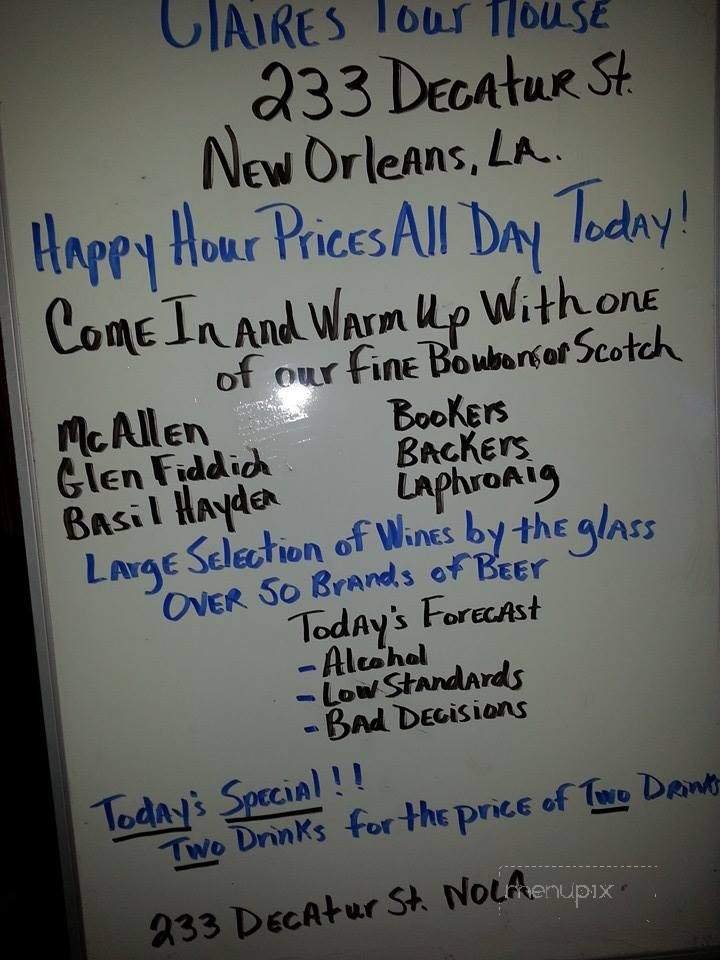 CLAIRES Your House
233 DECATUR St.
NEW OrleANs, LA.
HAppy Hour PricEs All DAy TodAy!
ComE In And WArm Up With onE
of our finE Boubons or Scotch
McAllEn
BooKErs
GlEn Fiddich
BAckErs
BAsil HAydEn
LAphroAig
LArgE SElEction of WinEs by thE glAss
OVER 50 BrAnds of BEEr
TodAy's ForEcAst
- Alcohol
- Low StAndArds
- BAd DEcisions
TodAy's SpEciAl!!
Two Drinks for thE pricE of Two Drinks
233 DECAtur St. NOLA
menupix